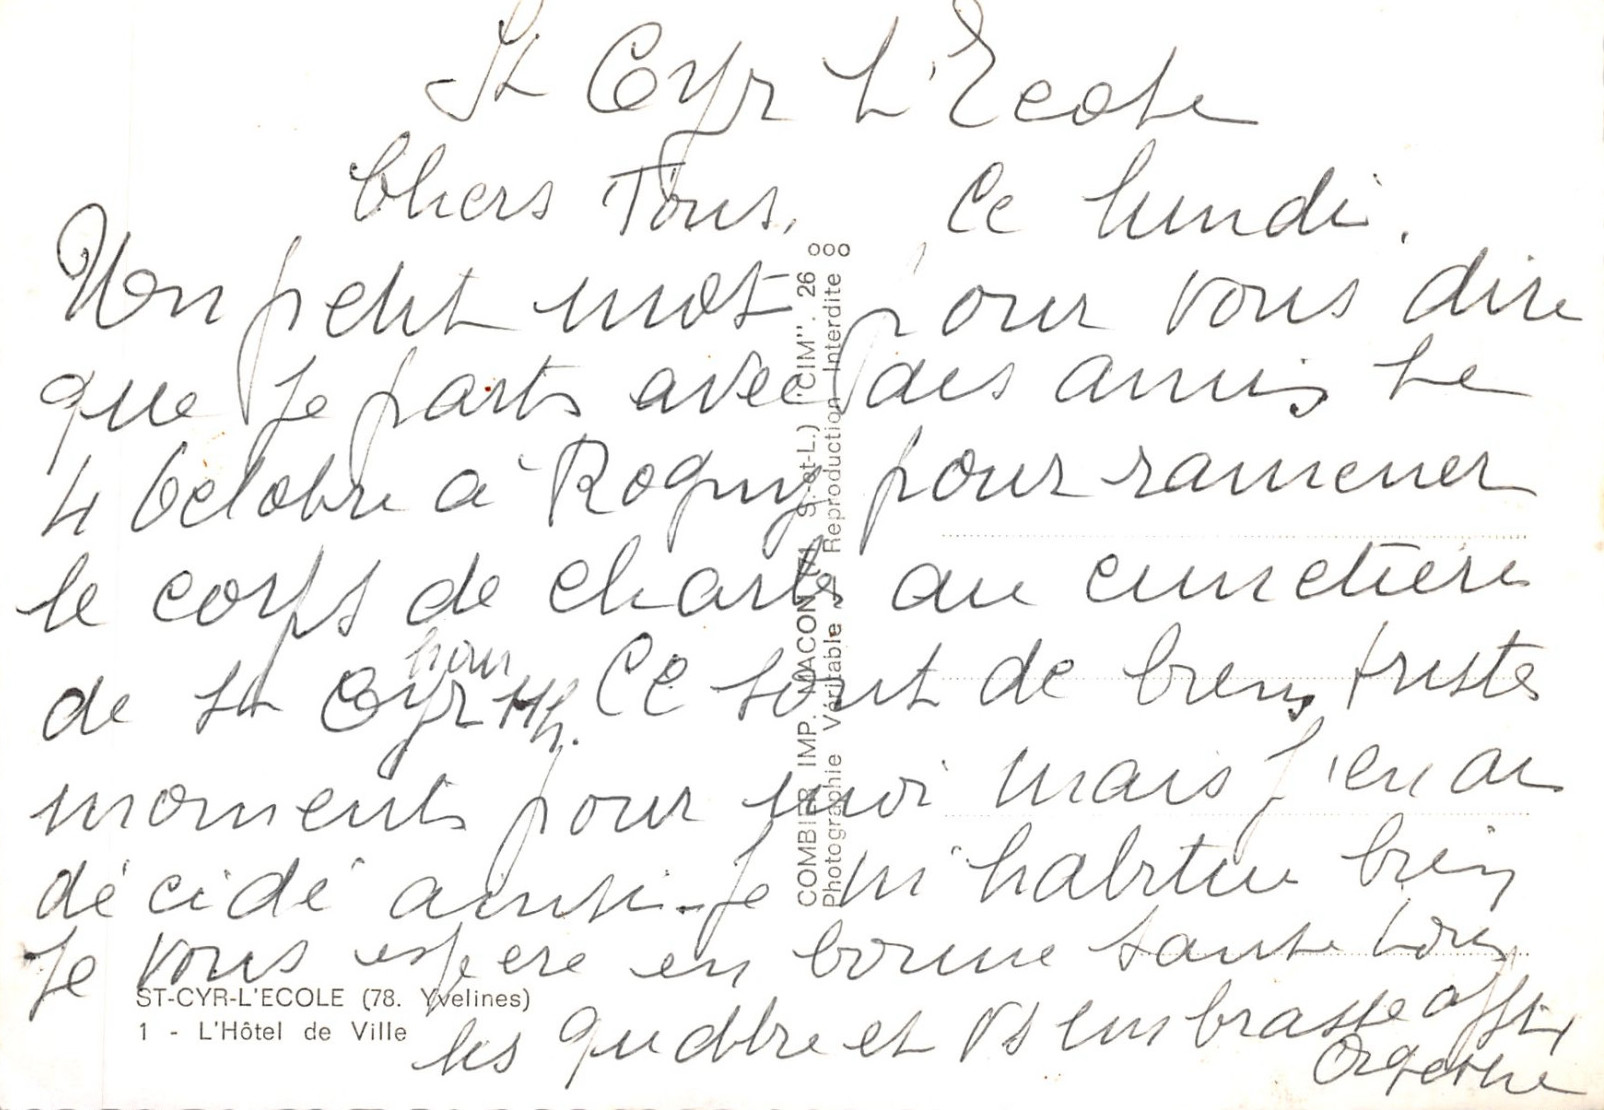 St Cyr l'Ecole
Chers Tous, Ce lundi.
Un petit mot pour vous dire
que je parts avec des amis le
4 Octobre à Rogny pour ramener
le corps de charles au cimetière
de St Cyr. Ce sont de biens tristes
moments pour moi mais j'en ai
décidé ainsi. je m'habitue bien
Je vous espère en bonne santé tous
les quattre et Vs embrasse afft
ST-CYR-L'ECOLE (78. Yvelines)
1 - L'Hôtel de Ville
COMBIER IMP. MACON (S.-et-L.) "CIM". 26
Photographie Véritable - Reproduction Interdite